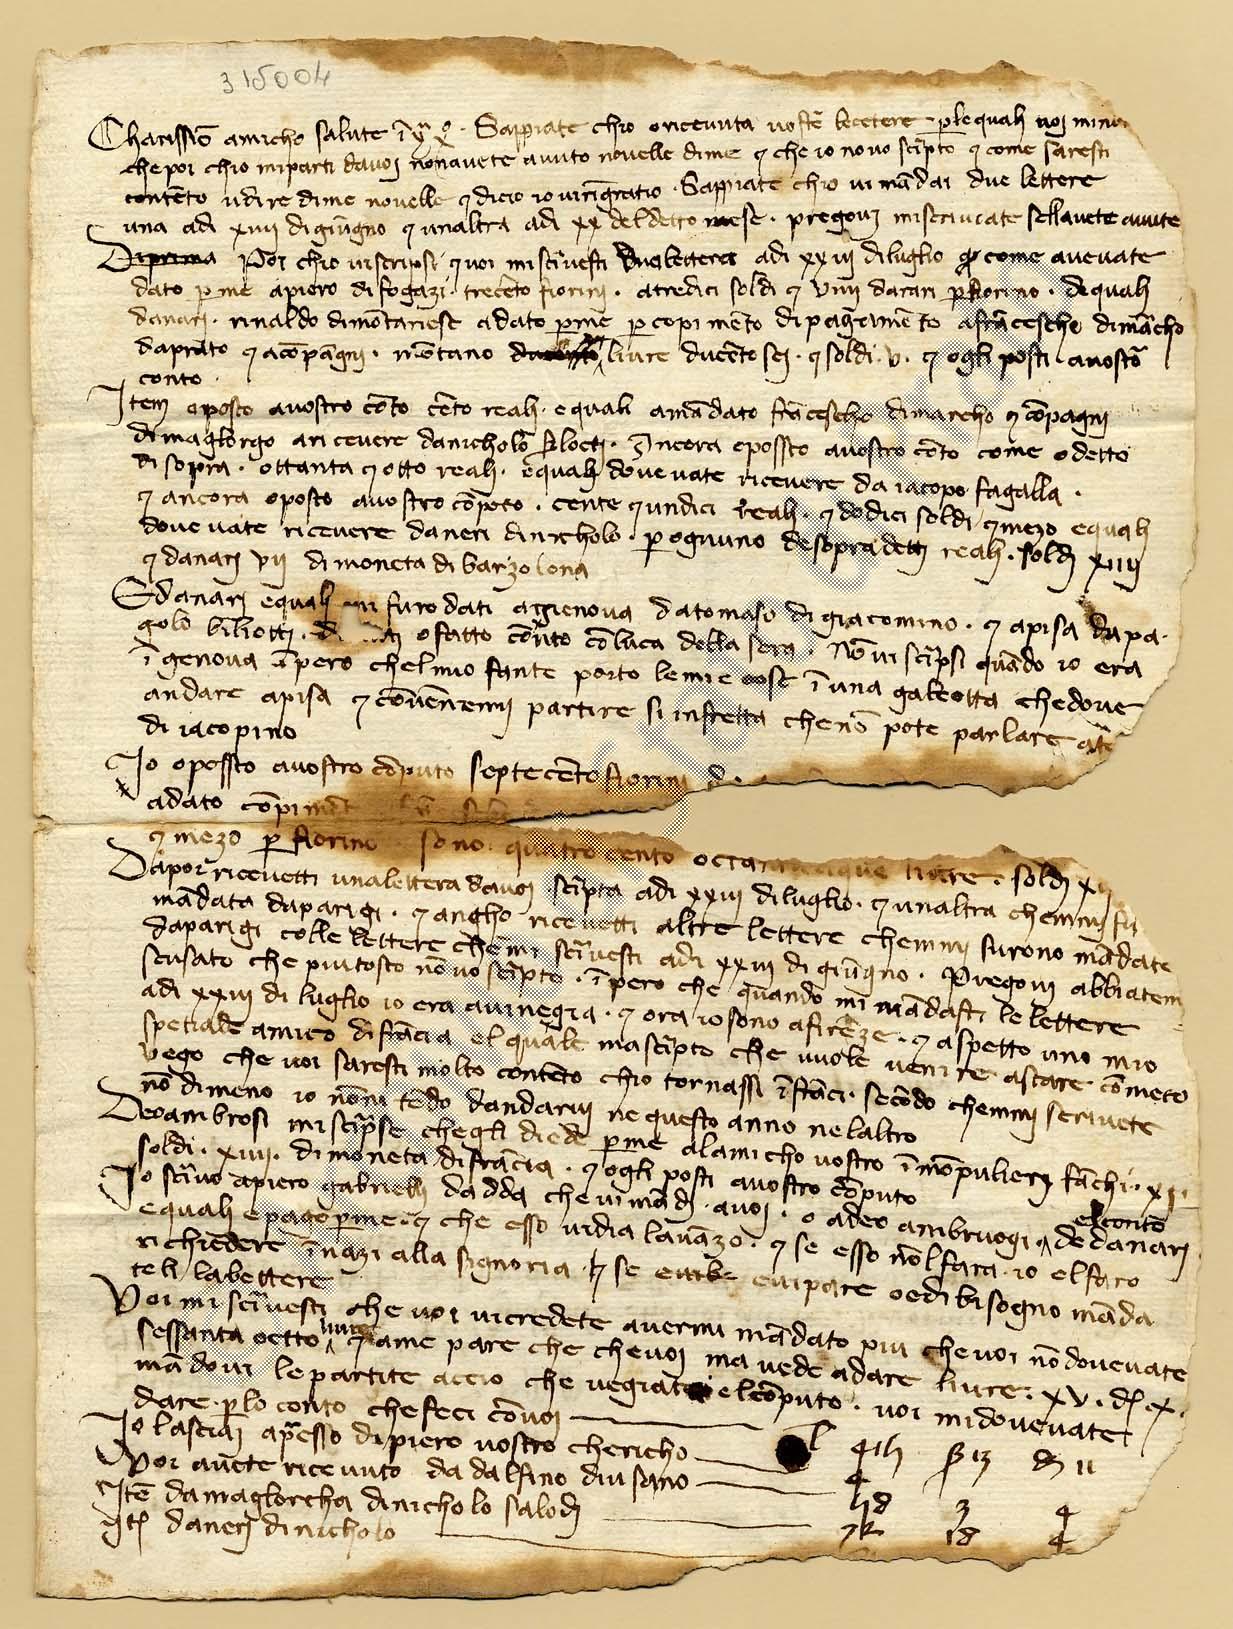 315004
Charissimo amicho salute in xpo. Sappiate chio o ricevuta vostre lectere per le quali voi mi
che poi chio mi parti da voi non avete avuto novelle di me e che io no vo scripto e come saresti
contento udire di me novelle e dicio io vi ringratio. Sappiate chio vi mandai due lettere
una adi xiiii di giungno e unaltra adi xx del detto mese. pregovi mi scriviate sellavete avute
Di prima Poi chio vi scripsi e voi mi scrivesti due lettere adi xxiii di luglio come avevate
dato per me a piero di fogazi. trecento fiorini. a tredici soldi e viiii danari per fiorino. de quali
danari. rinaldo di montariese a dato per me per copimento di pagamento a francescho di marcho
da prato e a compangni. montano livre ducento sei. e soldi. v. e ogli posti a vostro
conto.
Item o posto a vostro conto cento reali. e quali a mandato francescho di marcho e compagni
di maglorgo a ricevere da nicholo. Ancora o possto a vostro conto come o detto
di sopra. ottanta e otto reali. e quali dovevate ricevere da iacopo fagalla.
e ancora o posto a vostro computo. cento e undici reali. e dodici soldi e mezo e quali
dovevate ricevere da neri di nicholo. per ognuno de sopradetti reali. soldi xiiii
e danari vii di moneta di barzolona
E danari e quali furo dati a gienova da tomaso di giacomino. e a pisa da pa
golo biliotti. o fatto conto con luca della sera. Non vi scripsi quando io era
in genova in pero chel mio fante porto le mie cose in una galeotta che dove
andare a pisa e convennemi partire si in fretta che non pote parlare a
di iacopino
Io o possto a vostro computo septecento fiorini
a dato compi
e mezo per fiorino sono. quatro cento livre. soldi
Da poi ricevetti una lettera da voi scripta adi xxiii di luglio. e unaltra che mi fu
mandata da parigi. e angho ricevetti altre lettere che mi furono mandate
da parigi colle lettere che mi scrivesti adi xxiii di giungno. Pregovi abbiatemi
scusato che piu tosto non vo scripto. in pero che quando mi mandasti le lettere
adi xxiii di luglio io era a vinegia. e ora io sono a firenze. e aspetto uno mio
spetiale amico di francia el quale ma scripto che vuole venire a stare con meco
vego che voi saresti molto contento chio tornassi in franci. secondo che mi scrivete
non dimeno io non intendo dandarvi ne questo anno ne laltro
Deo ambrosi mi scripse chegli diede per me al amicho vostro in monpulieri franchi.
soldi. xiiii. di moneta di francia. e ogli posti a vostro computo
Io scrivo a piero gabrielli da dda che vi mandi. a voi. o a deo ambruogi el conto de danari
e quali e pago per me. e che esso vi dia lavanzo. e se esso nol fara. io el faro
richiedere innazi alla signoria. e se vi pare o e di bisogno manda
teli la lettere
Voi mi scrivesti che voi vi credete avermi mandato piu che voi non dovevate
sessanta octo livre e a me pare che che voi mavede a dare livre. xv.
mandovi le partite accio che vegiate el computo. voi mi dovevate
dare. per lo conto che feci con voi
Io lasciai apresso di piero vostro chericho
Voi avete ricevuto da dalfino di visano
Item da maglorcha di nicholo
Item da neri di nicholo